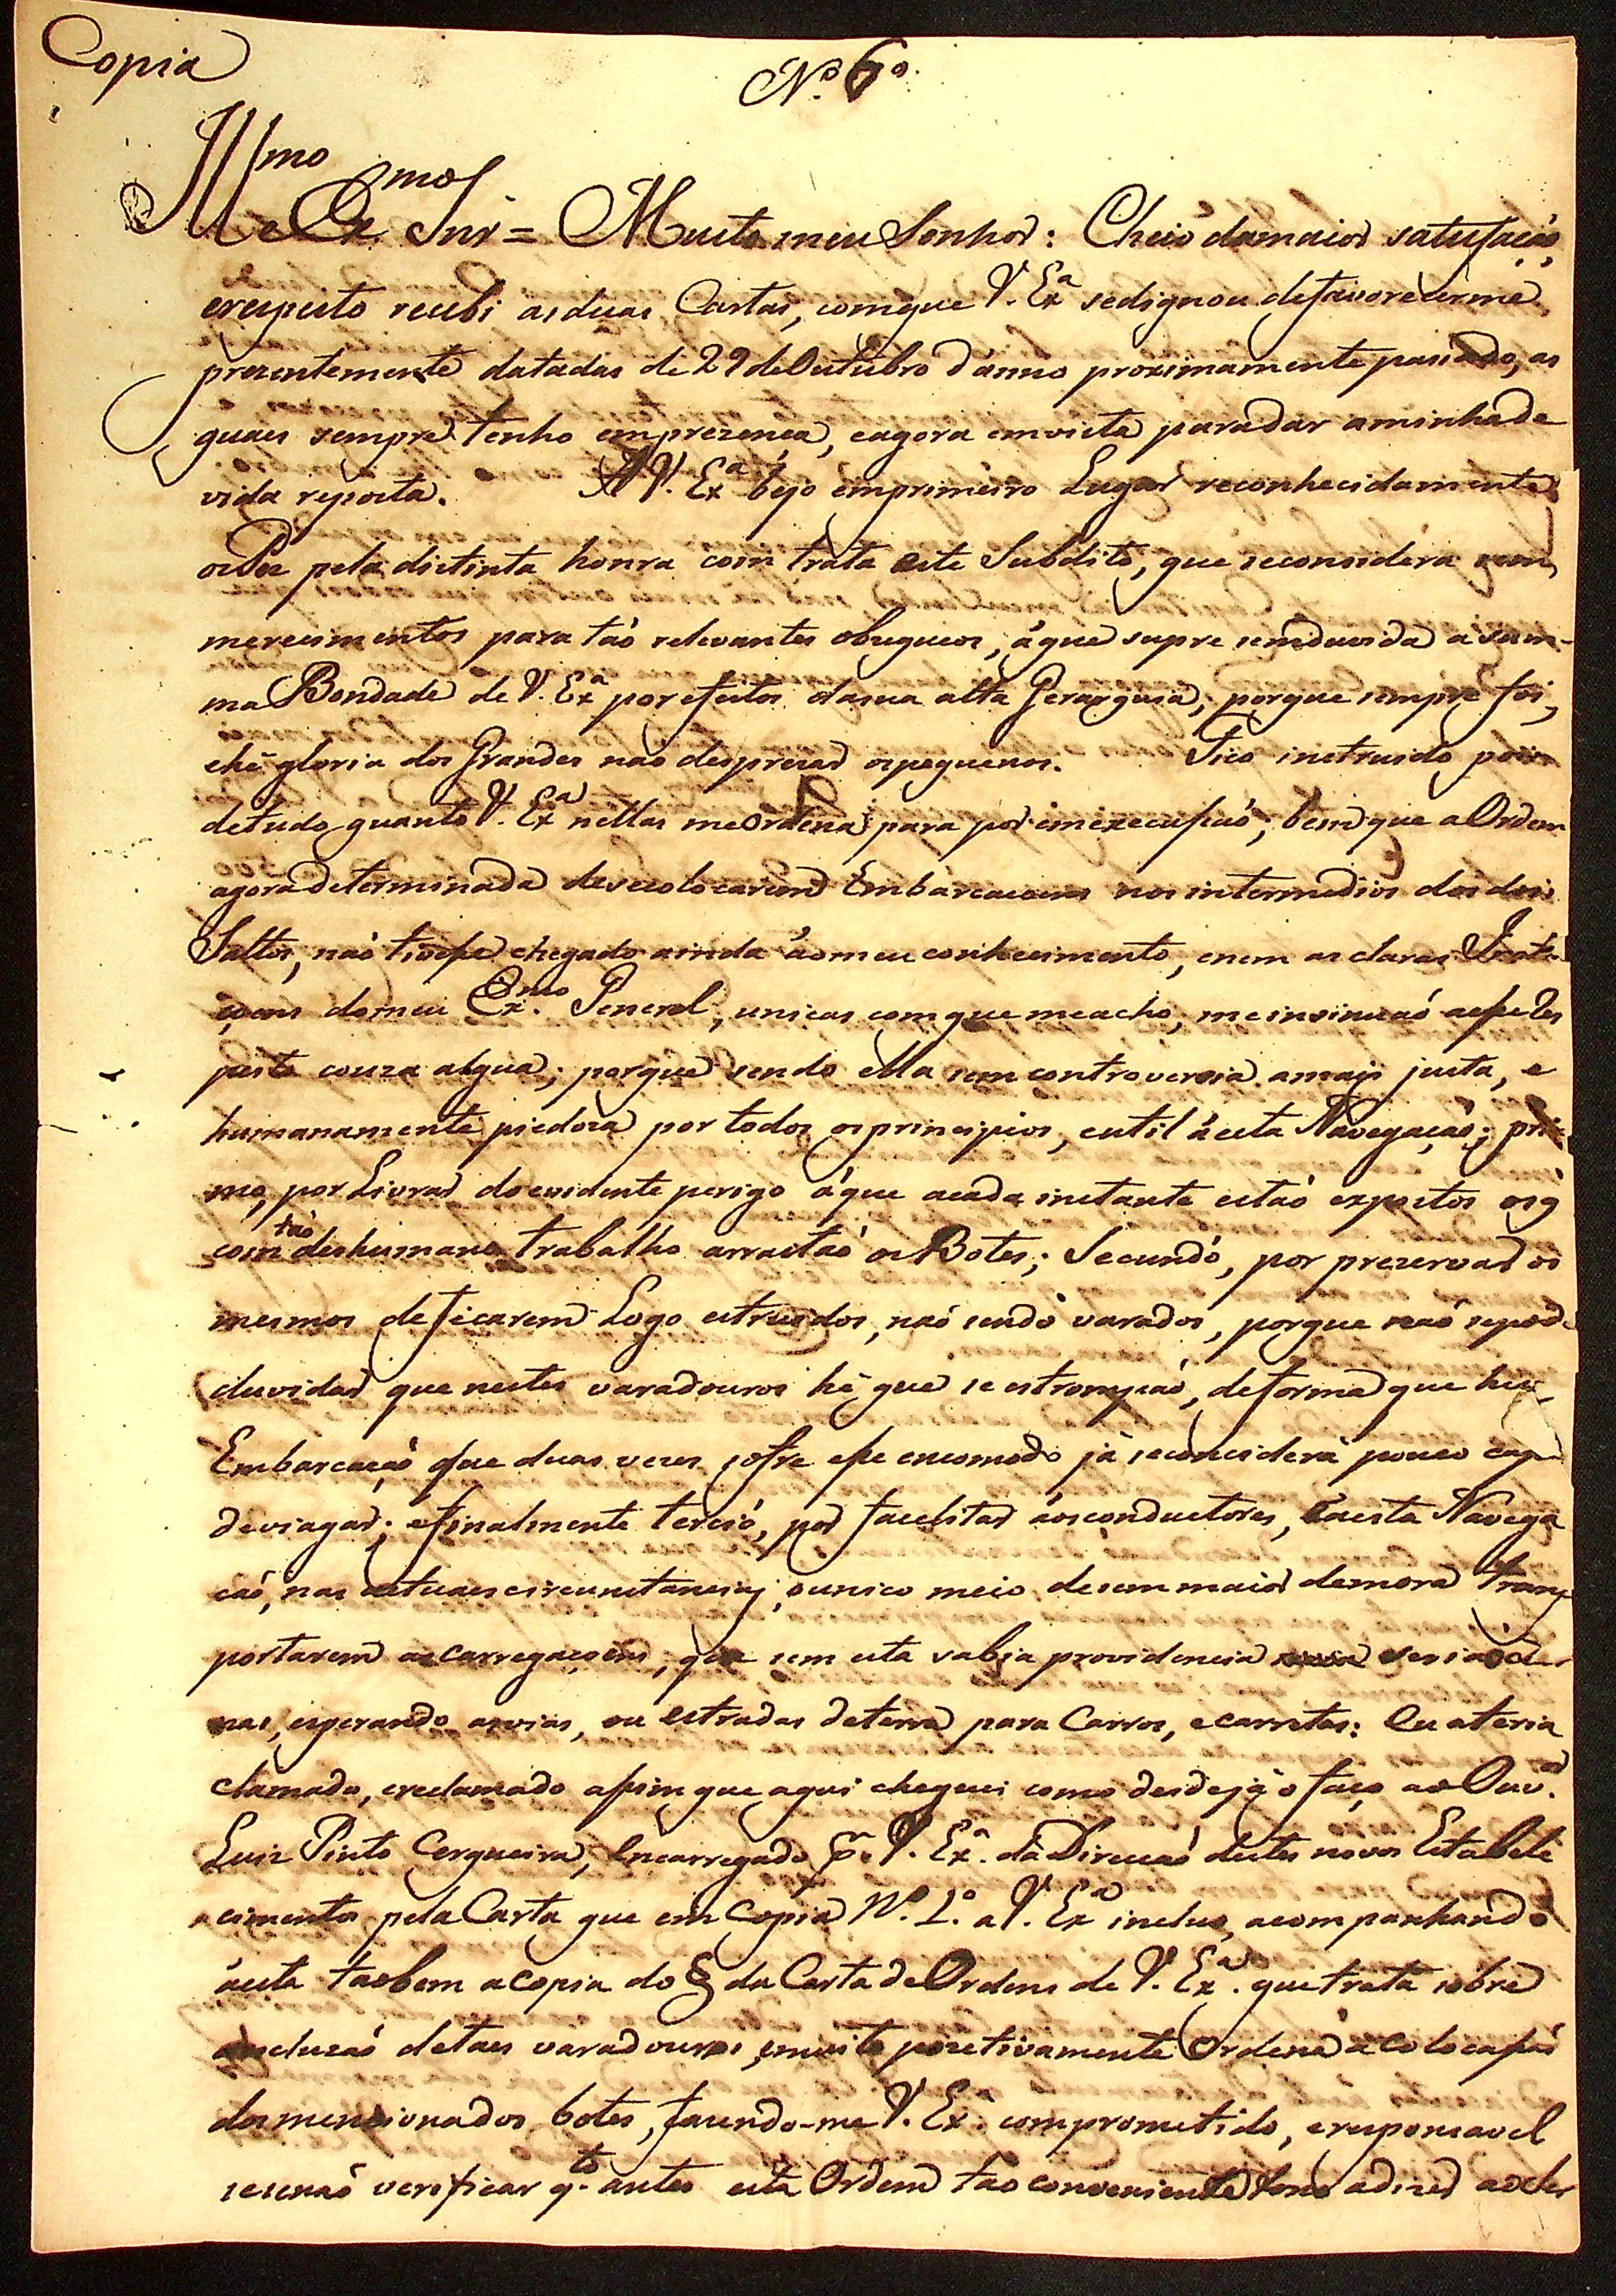 Copia
N.º 6º
Illmo e Exmo Snr = Muito meu Senhor: Cheio da maior satisfação,
e respeito recebi as duas Cartas, com que V. Exª se dignou de favorecerme
prezentemente datadas de 29 de Outubro d'anno proximamente passado, as
quaes sempre tenho em prezença, e agora em vista para dar a minha de
vida reposta. A V. Exª bejo em primeiro Lugar reconhecidamente
os Pes pela distinta honra com trata este Subdito, que se considera sem
merecimentos para taõ relevantes obzequeos, á que supre sem duvida a sum-
ma Bondade de V. Exª por efeitos da sua alta Gerarquia; porque sempre foi,
e hé gloria dos Grandes naõ desprezar os pequenos. Fico instruido pois
de tudo quanto V. Exª nellas me Ordena para por em execussaõ; bem que a Ordem
agora determinada de se colocarem Embarcacoens nos intermedios dos dois
Saltos, naõ tivesse chegado ainda áo meu conhecimento, e nem as claras Instr
çoens do meu Exmo. General, unicas com que me acho, me insinuaõ a respeito
desta couza algua; porque sendo ella sem controversia a mais justa, e
humanamente piedoza por todos os principios, e util á esta Navegaçaõ; pri
mo, por Livrar do evidente perigo á que a cada instante estaõ expostos os q̃
com taõ deshumano trabalho arrastaõ os Botes; Secundó, por prezervar os
mesmos de ficarem Logo estruidos, naõ sendo varados, porque naõ se pode
duvidar que nestes varadouros hé que se estrompaõ, de forma que hua
Embarcaçaõ que duas vezes sofre esse encomodo já se considera pouco capaz
de viagar; e finalmente terció, por facelitar áos conductores, e a esta Navega
caõ, nas actuaes circunstancias, o unico meio de sem maior demora trans
portarem as carregaçoens, que sem esta sabia providencia seriaõ eter
nas, esperando as vias, ou estradas de terra para Carros, e carretas: Eu a teria
clamado, e reclamado assim que aqui cheguei como desde já o faço ao Ouv.or
Luiz Pinto Cerqueira, Encarregado p.r V. Exª. da Direcaõ destes novos Estabele
cimentos pela Carta que em Copia N.º 1.º a V. Exª incluo, acompanhando
á esta taobem a copia do § da Carta de Ordens de V. Exª. que trata sobre
a concluzaõ de taes varadouros, e muito pozetivamente Ordena a colocassaõ
dos mencionados botes, fazendo-me V. Exª. comprometido, e responsavel
se se naõ verificar q.to antes esta Ordem taõ conveniente